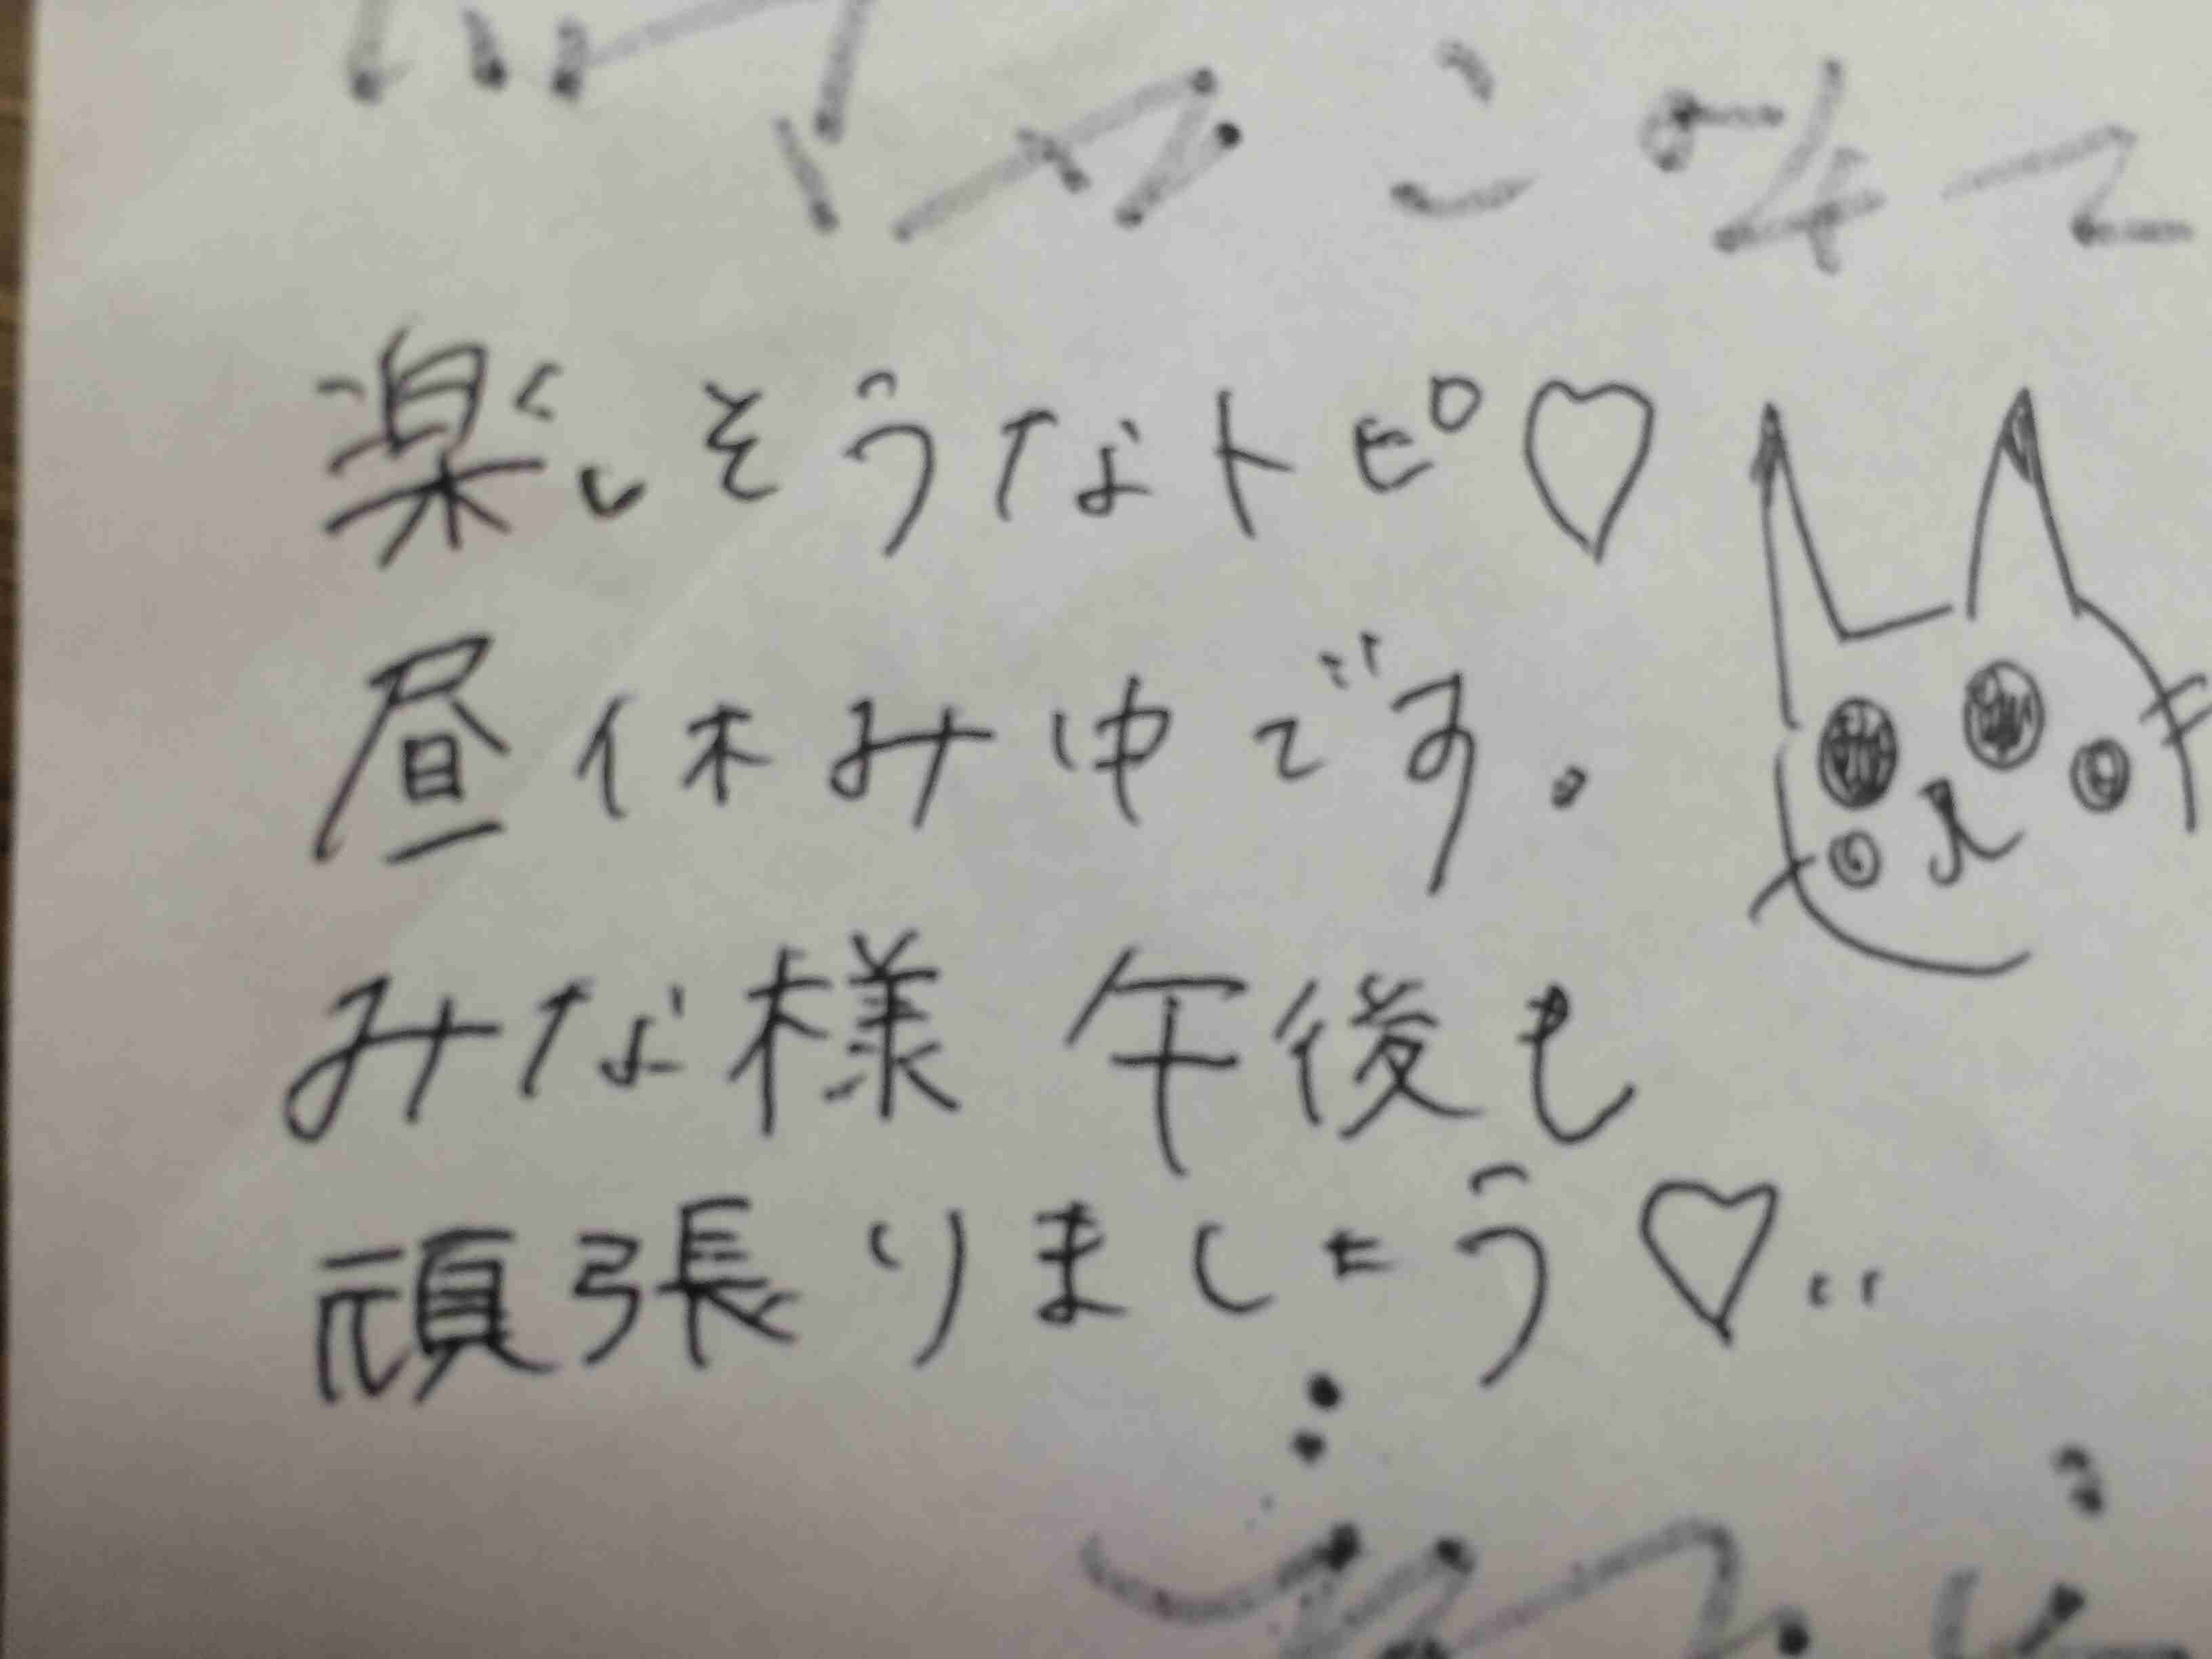 楽しそうなトピ♡
昼休み中です。
みな様 午後も
頑張りましょう♡‥